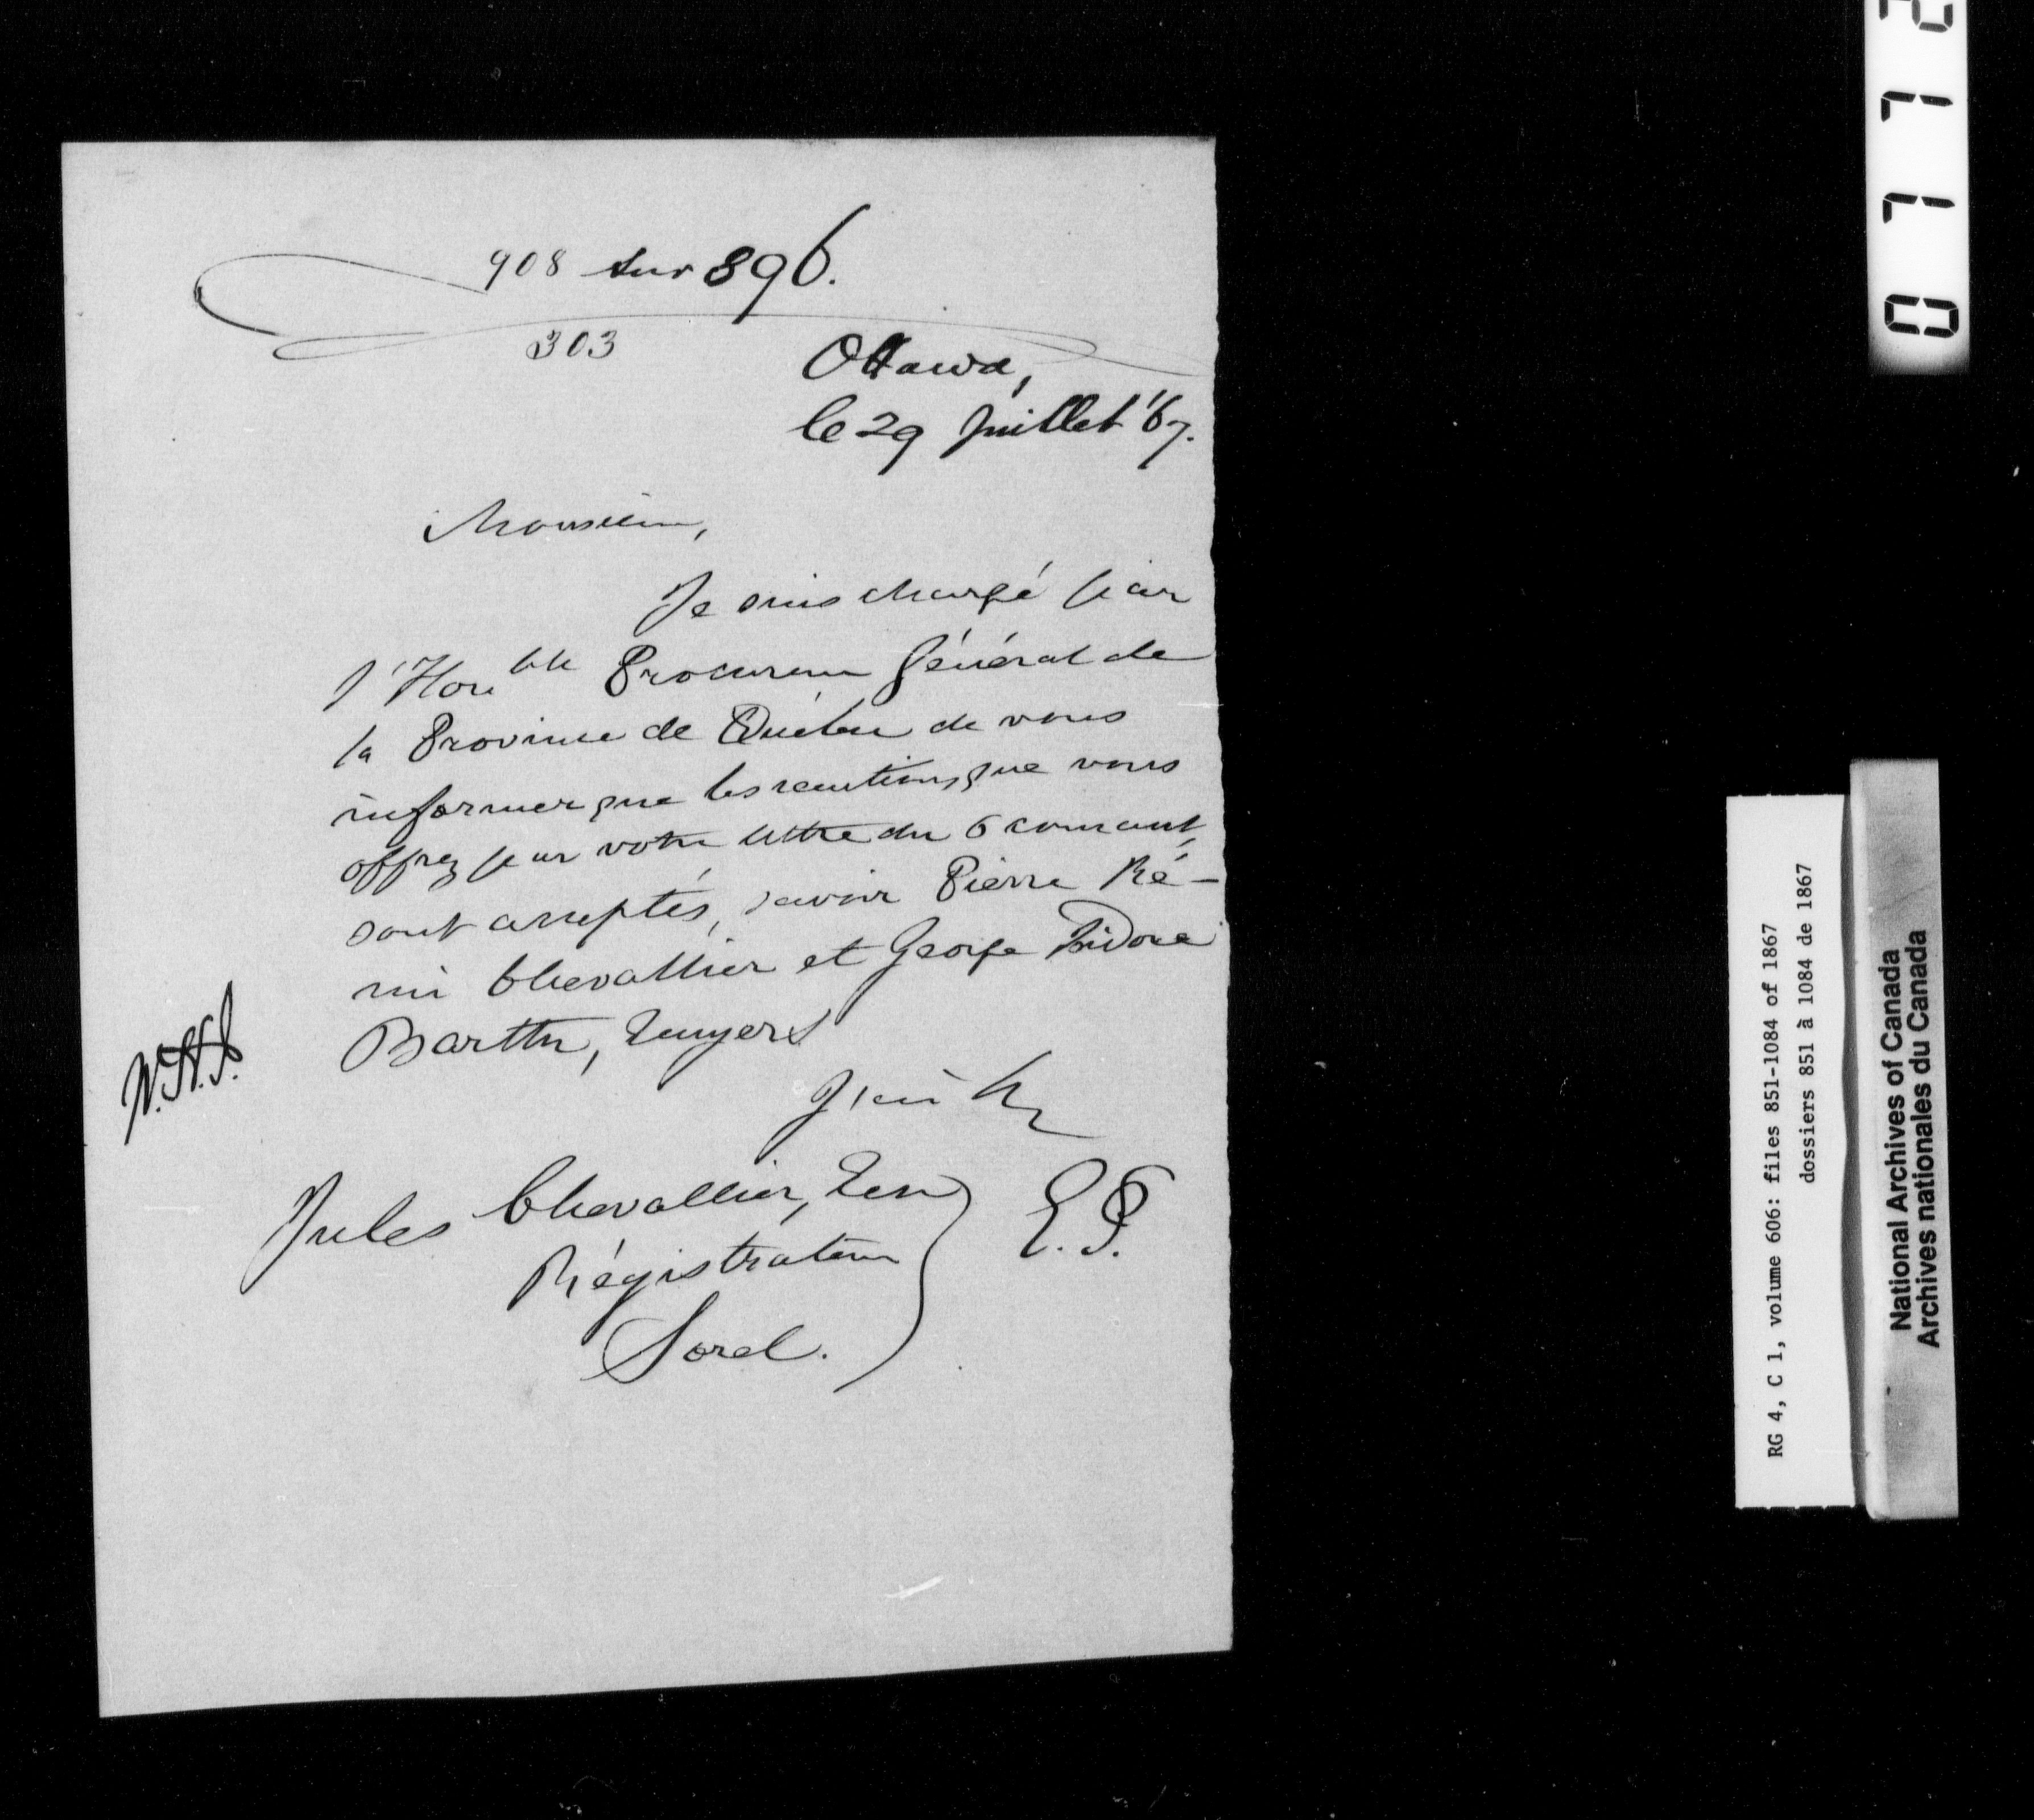 908 sur 896.
303
Ottawa,
le 29 Juillet '67.
Monsieur,
Je suis chargé par
l'Hon ble Procureur Général de
la Province de Québec de vous
informer que les cautions que vous
offrez par votre lettre du 6 courant,
sont acceptés, savoir Pierre Ré-
mi Chevallier et George Isidore
Barthe, Ecuyers
J'ai &c
Jules Chevallier, Ecr
Régistrateur
Sorel.
E. P.
RG 4, C 1, volume 606: files 851-1084 of 1867
dossiers 851 à 1084 de 1867
National Archives of Canada
Archives nationales du Canada